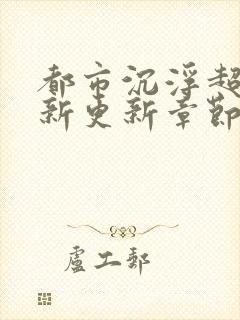 都市沉浮超
新更新章節
盧工郵